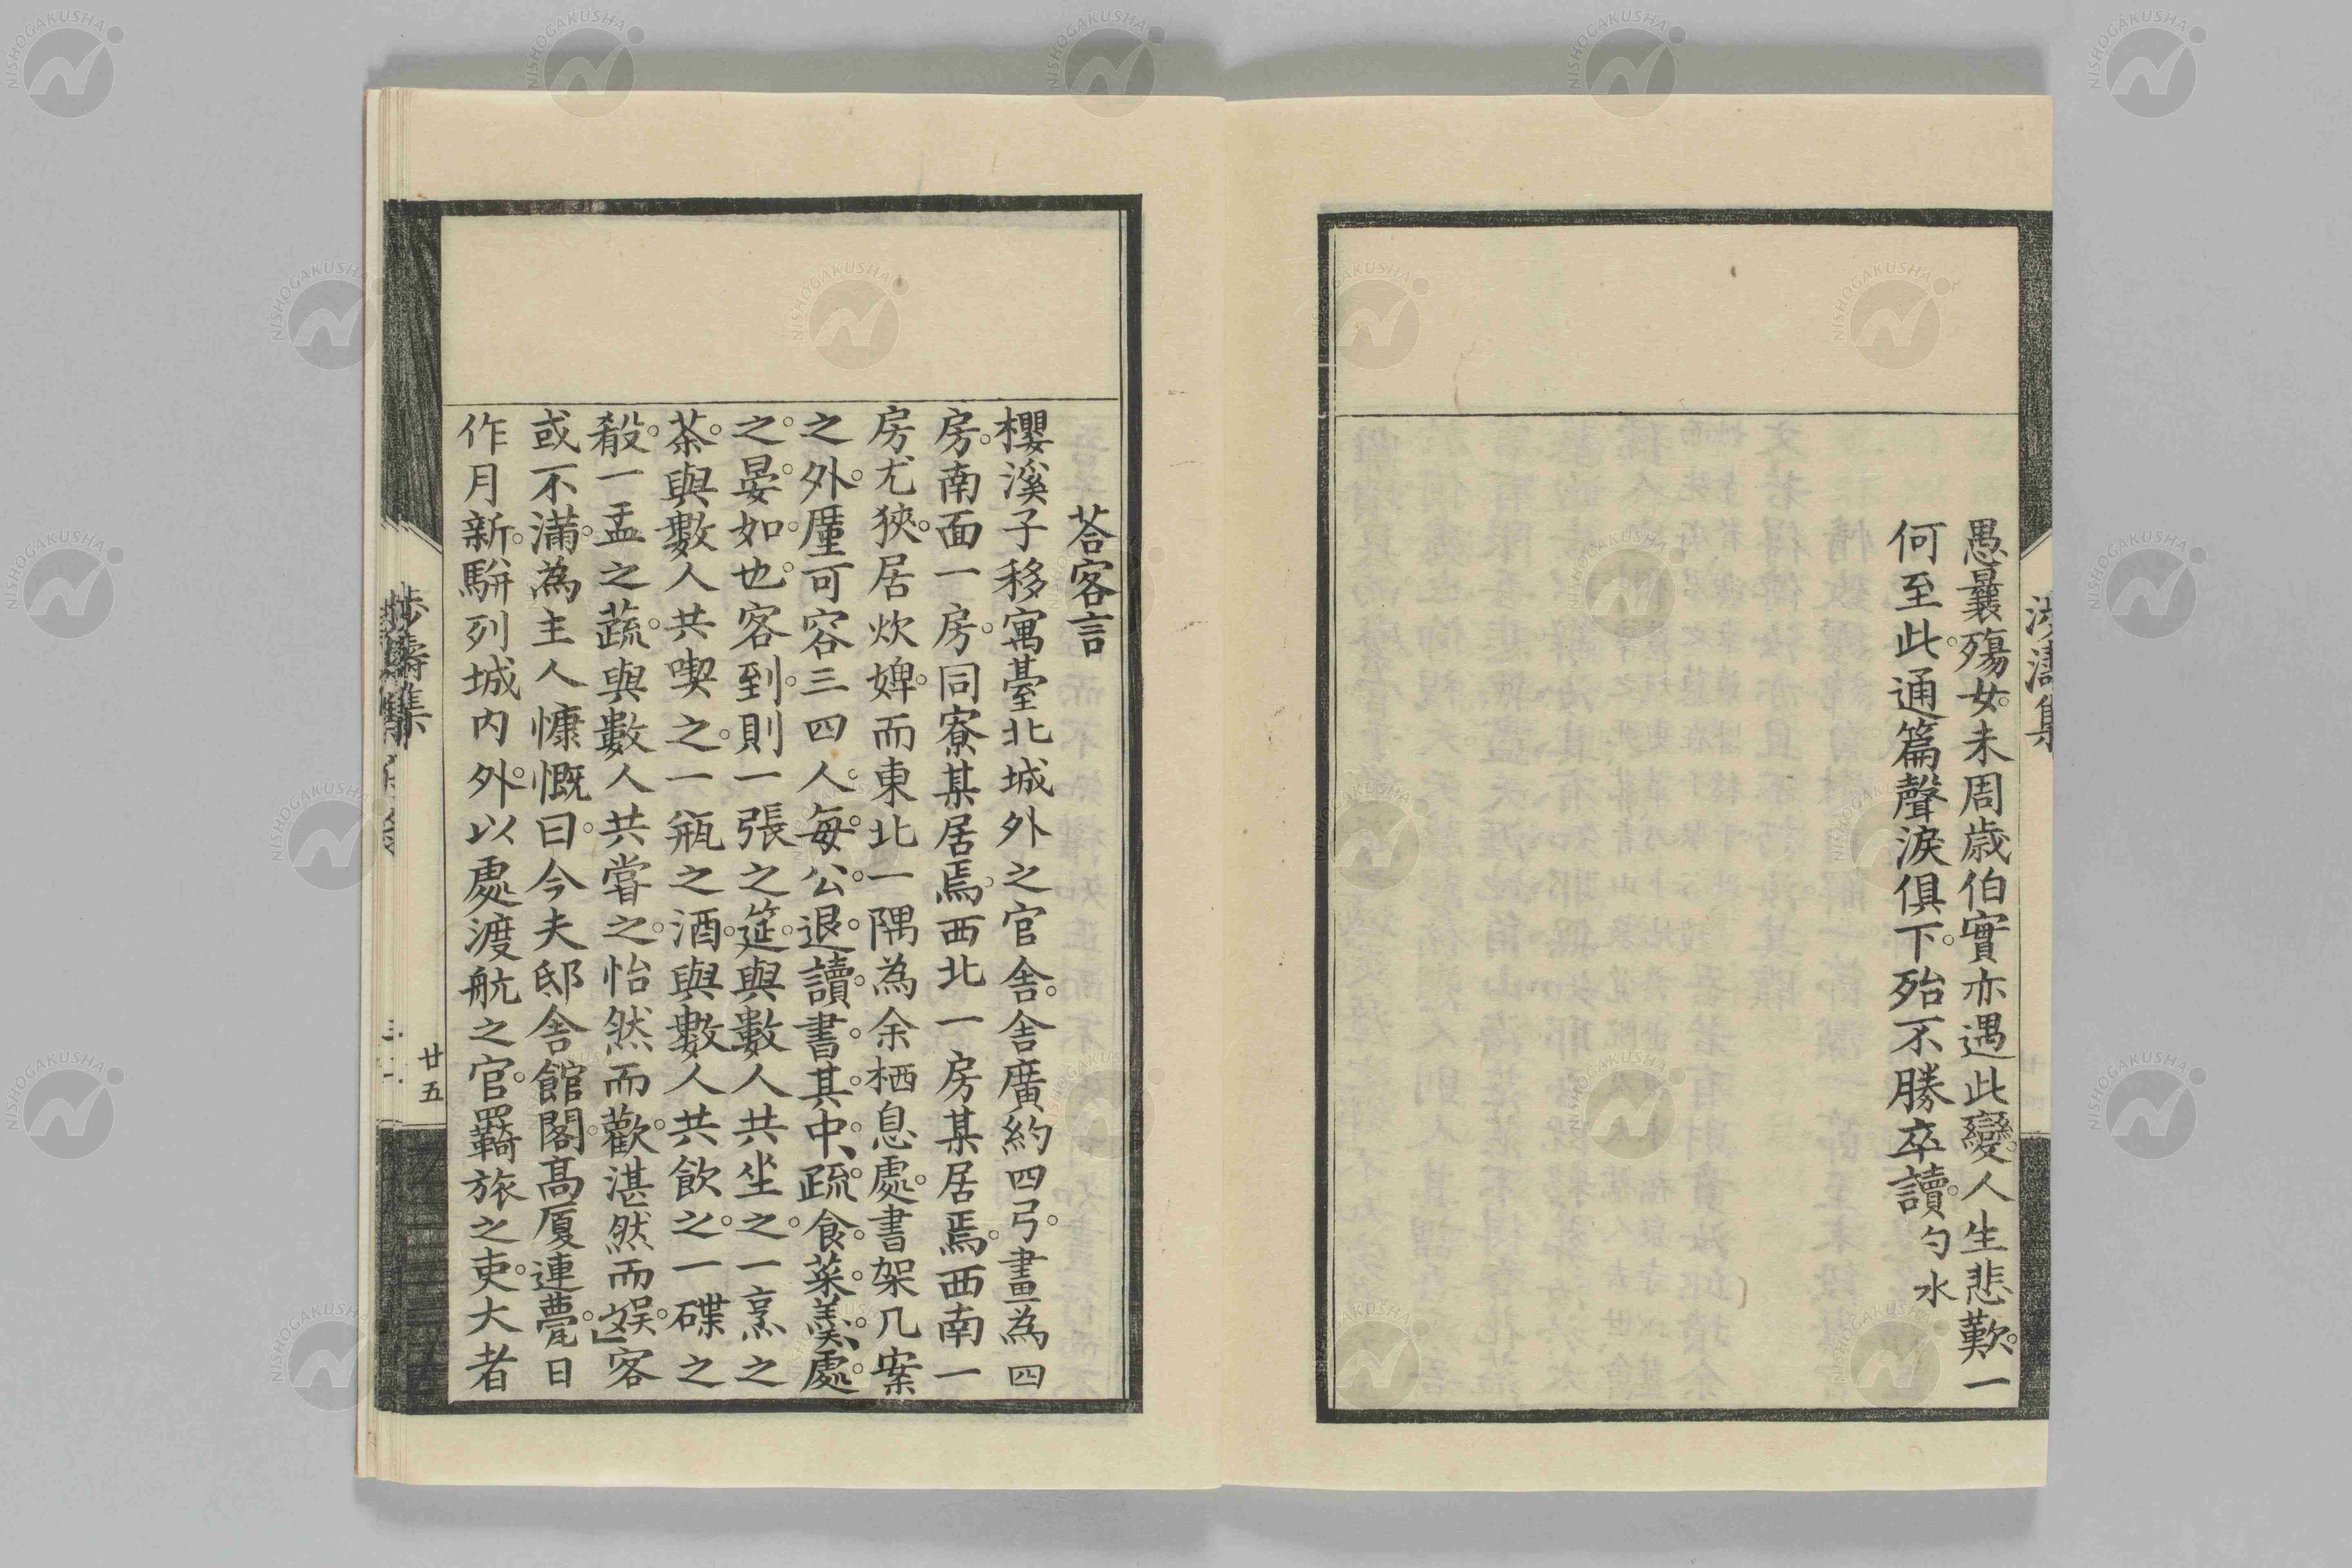 愚曩殤女。未周歳伯實亦遇此變。人生悲歎。一
何至此。通篇聲淚俱下。殆不勝卒讀。勺水
涉濤集
荅客言
櫻溪子移寓臺北城外之官舎。舎廣約四弓。畫為四
房。南面一房。同寮某居焉。西北一房某居焉。西南一
房尤狹。居炊婢。而東北一隅為余栖息處。書架几案
之外。厪可容三四人。每公退讀書其中、疏食菜羹、處
之晏如也。客到。則一張之筵。與數人共坐之。一烹之
茶。與數人共喫之。一瓶之酒。與數人共飲之。一碟之
殽。一盂之蔬。與數人共嘗之。怡然而歡。湛然而娯。」客
或不滿。為主人慷慨曰。今夫邸舎館閣。高厦連甍。日
作月新。駢列城內外。以處渡航之官。羈旅之吏。大者
涉濤集
廿五
NISHOGAKUSHA